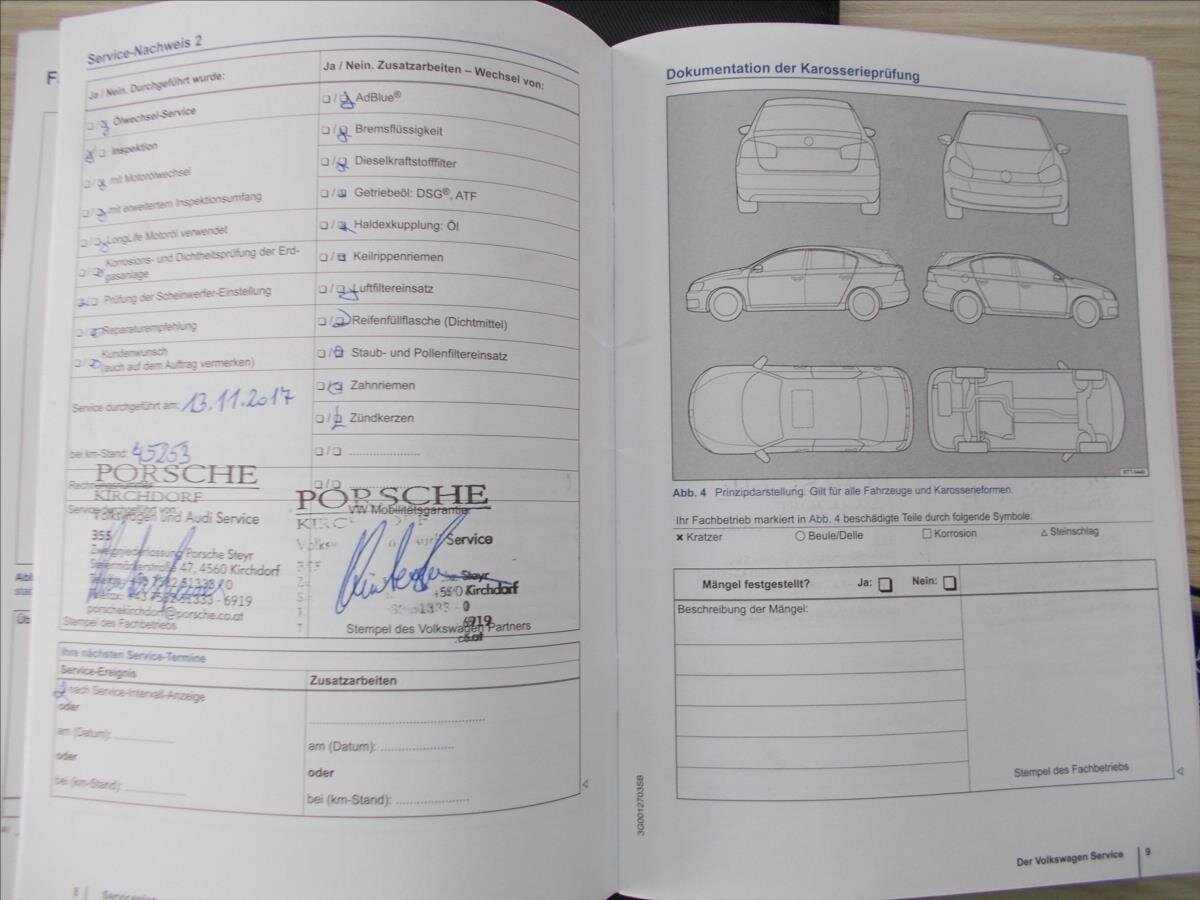 Service-Nachweis 2
Ja / Nein. Durchgeführt wurde:
Ölwechsel-Service
Inspektion
mit Motorölwechsel
mit erweitertem Inspektionsumfang
LongLife Motoröl verwendet
Korrosions- und Dichtheitsprüfung der Erd-
gasanlage
Prüfung der Scheinwerfer-Einstellung
Reparaturempfehlung
Kundenwunsch
(auch auf dem Auftrag vermerken)
Service durchgeführt am: 13.11.2017
bei km-Stand: 45253
PORSCHE
KIRCHDORF
Service durchgeführt von:
Volkswagen und Audi Service
355
Zweigniederlassung Porsche Steyr
Steiermärkerstraße 47, 4560 Kirchdorf
porschekirchdorf@porsche.co.at
Stempel des Fachbetriebs
Ja / Nein. Zusatzarbeiten – Wechsel von:
AdBlue®
Bremsflüssigkeit
Dieselkraftstofffilter
Getriebeöl: DSG®, ATF
Haldexkupplung: Öl
Keilrippenriemen
Luftfiltereinsatz
Reifenfüllflasche (Dichtmittel)
Staub- und Pollenfiltereinsatz
Zahnriemen
Zündkerzen
PORSCHE
VW Mobilitätsgarantie
Service
Steyr
Kirchdorf
6919
Stempel des Volkswagen Partners
Ihre nächsten Service-Termine
Service-Ereignis
nach Service-Intervall-Anzeige
oder
am (Datum):
oder
bei (km-Stand):
Zusatzarbeiten
am (Datum):
oder
bei (km-Stand):
8
Dokumentation der Karosserieprüfung
Abb. 4 Prinzipdarstellung. Gilt für alle Fahrzeuge und Karosserieformen.
Ihr Fachbetrieb markiert in Abb. 4 beschädigte Teile durch folgende Symbole:
× Kratzer ○ Beule/Delle □ Korrosion △ Steinschlag
Mängel festgestellt? Ja: ❑ Nein: ❑
Beschreibung der Mängel:
Stempel des Fachbetriebs
3G0012703SB
Der Volkswagen Service 9